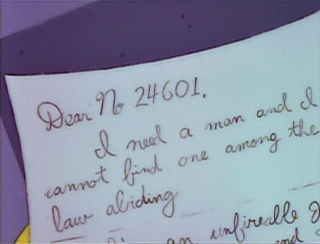 Dear No 24601,
I need a man and I
cannot find one among the
law abiding
an unfireable